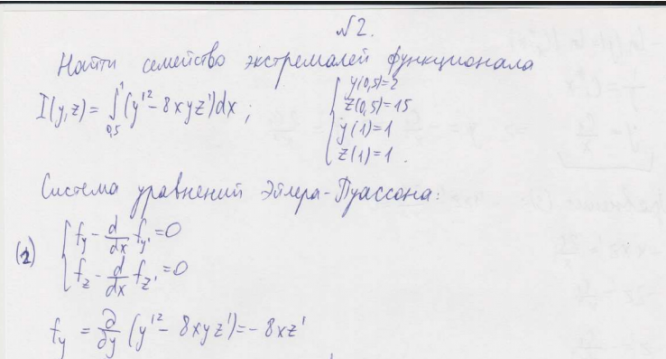 №2.
Найти семейство экстремалей функционала
I(y,z) = ∫_{0,5}^{1} (y'² - 8xyz')dx ; { y(0,5)=2
z(0,5)=15
y(1)=1
z(1)=1.
Система уравнений Эйлера-Пуассона:
(1) { f_y - d/dx f_y' = 0
f_z - d/dx f_z' = 0
f_y = ∂/∂y (y'² - 8xyz') = -8xz'